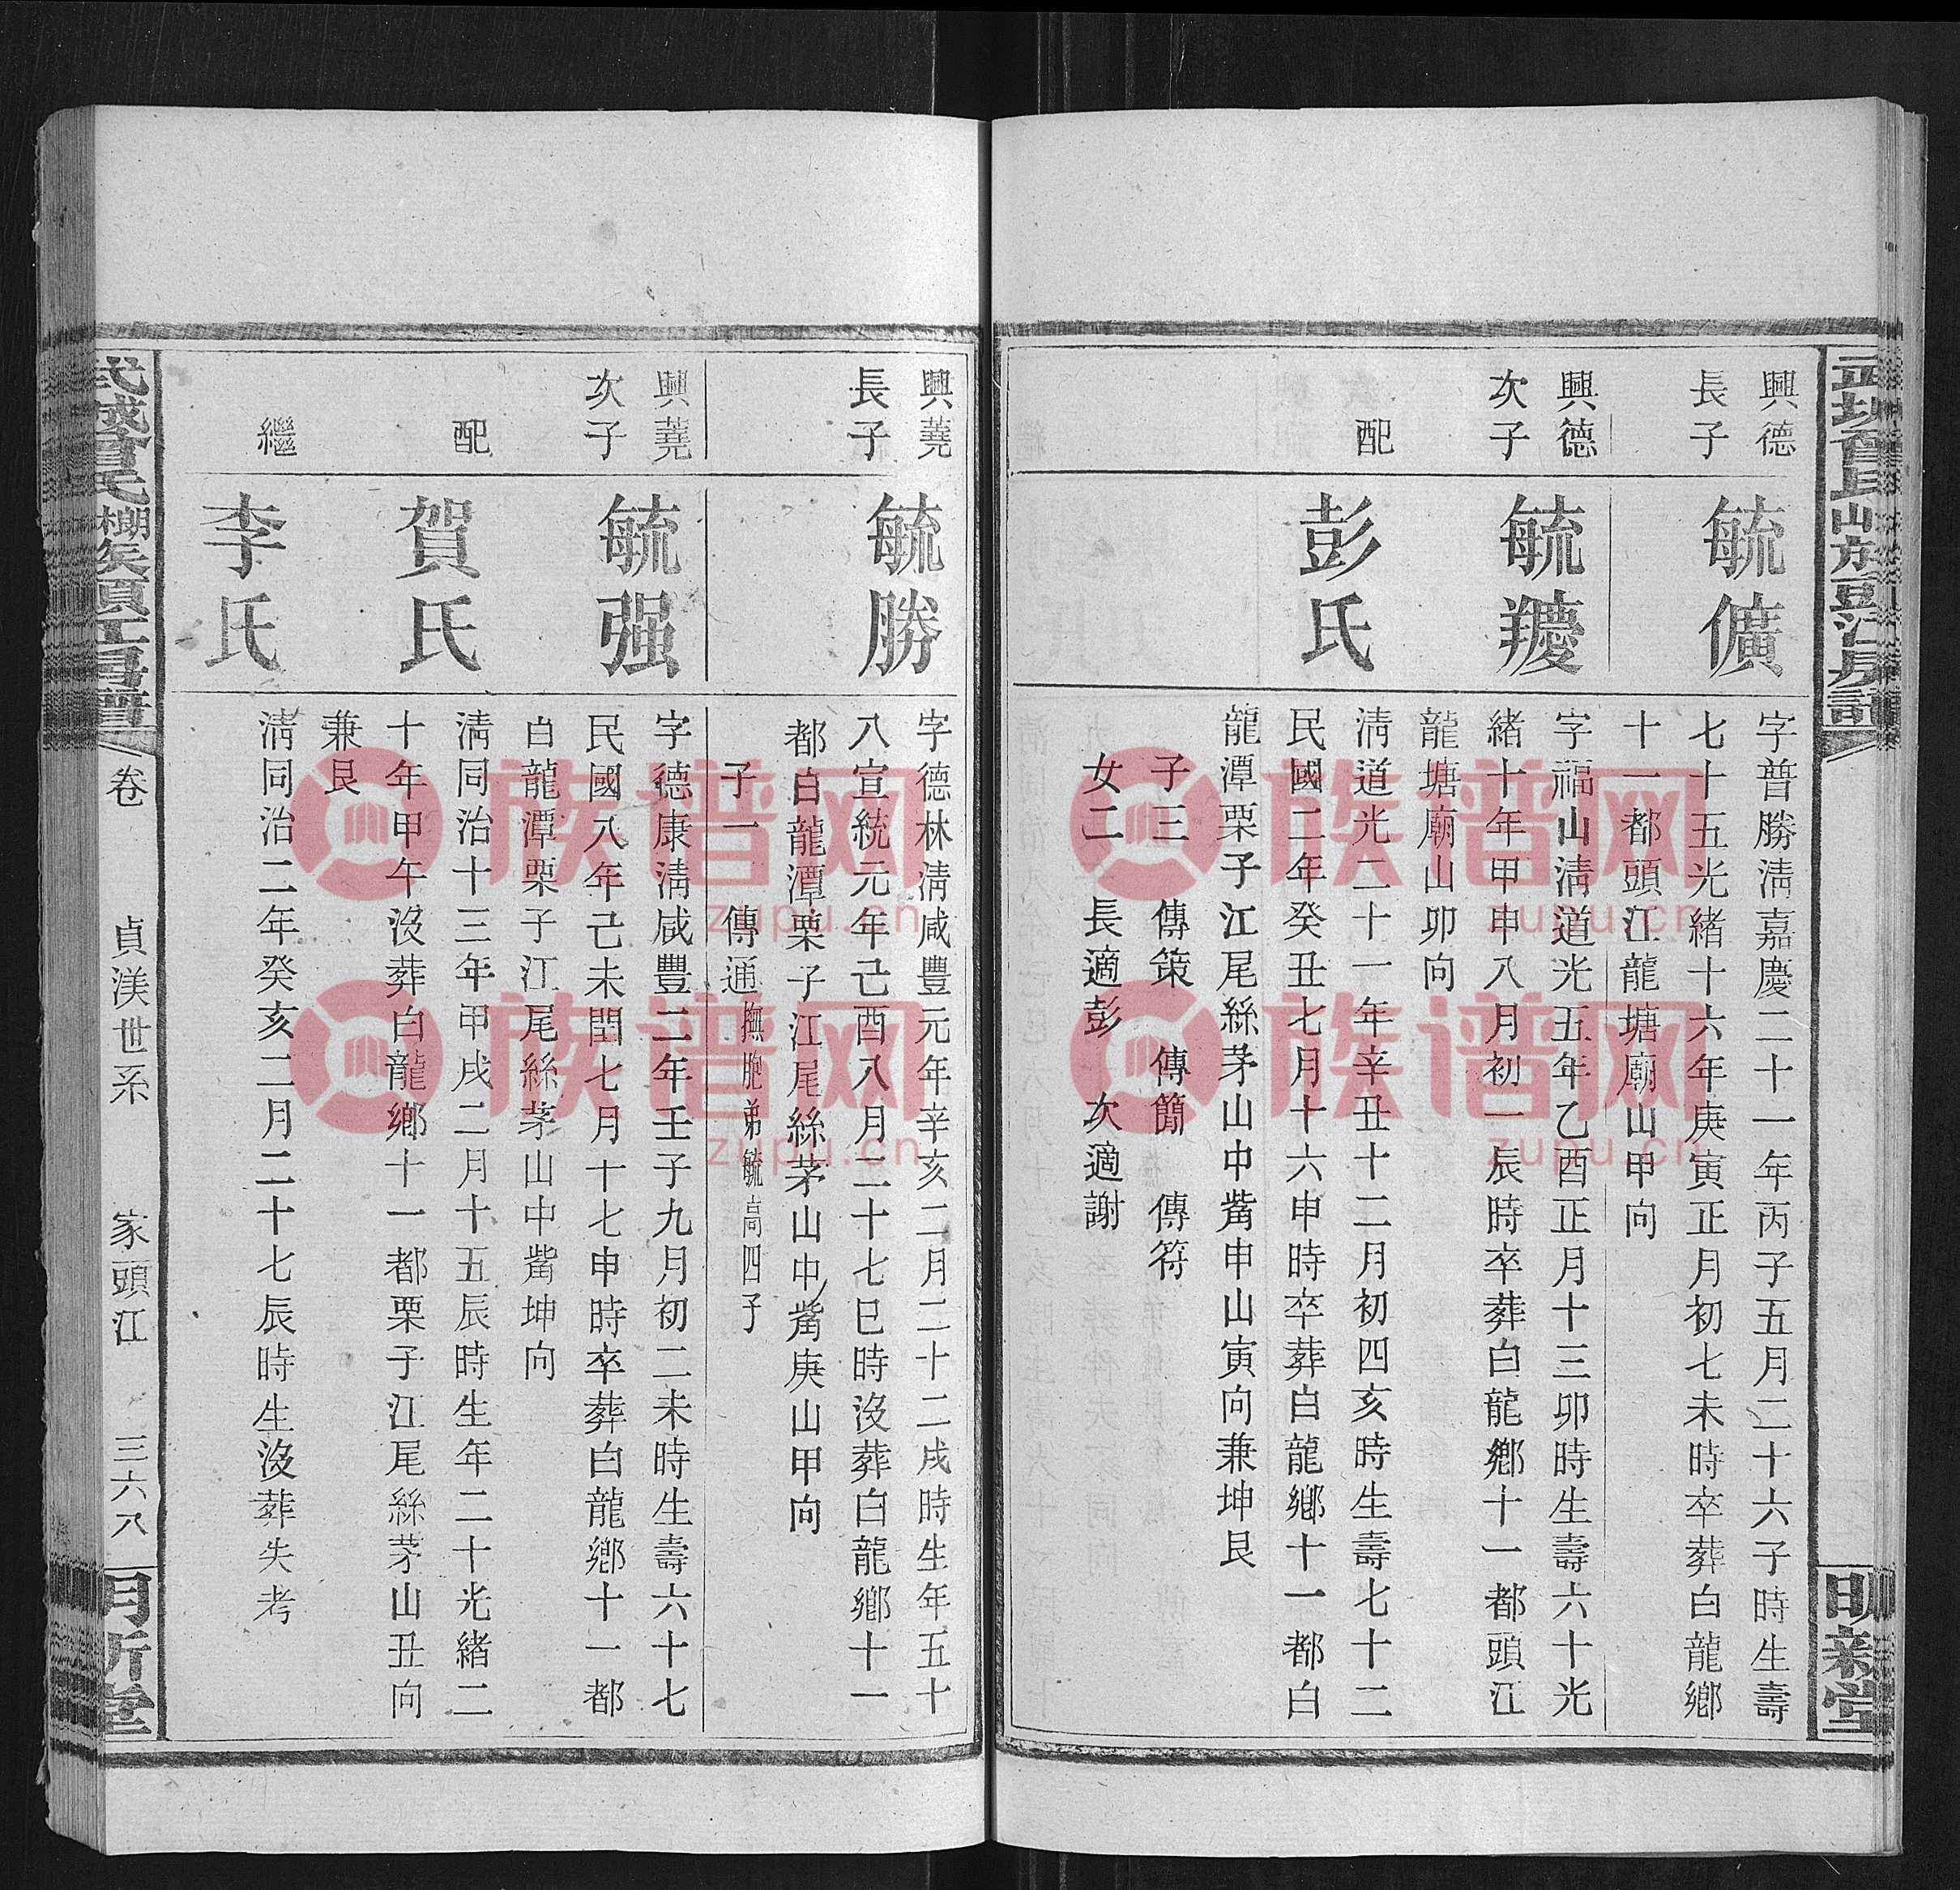 興德
長子
毓儣
字普勝淸嘉慶二十一年丙子五月二十六子時生壽
七十五光緒十六年庚寅正月初七未時卒葬白龍鄉
十一都頭江龍塘廟山甲向
興德
次子
毓
字福山淸道光五年乙酉正月十三卯時生壽六十光
緒十年甲申八月初一辰時卒葬白龍鄉十一都頭江
龍塘廟山卯向
配
彭氏
淸道光二十一年辛丑十二月初四亥時生壽七十二
民國二年癸丑七月十六申時卒葬白龍鄉十一都白
龍潭栗子江尾絲茅山中觜申山寅向兼坤艮
子三 傳策 傳簡 傳符
女二 長適彭 次適謝
明新堂
興蕘
長子
毓勝
字德林淸咸豐元年辛亥二月二十二戌時生年五十
八宣統元年己酉八月二十七巳時沒葬白龍鄉十一
都白龍潭栗子江尾絲茅山中觜庚山甲向
子一 傳通撫胞弟毓高四子
興蕘
次子
毓强
字德康淸咸豐二年壬子九月初二未時生壽六十七
民國八年己未閏七月十七申時卒葬白龍鄉十一都
白龍潭栗子江尾絲茅山中觜坤向
配
賀氏
淸同治十三年甲戌二月十五辰時生年二十光緒二
十年甲午沒葬白龍鄉十一都栗子江尾絲茅山丑向
兼艮
繼
李氏
淸同治二年癸亥二月二十七辰時生沒葬失考
卷 貞渼世系 家頭江 三六八
族谱网
zupu.cn
族谱网
zupu.cn
族谱网
zupu.cn
族谱网
zupu.cn